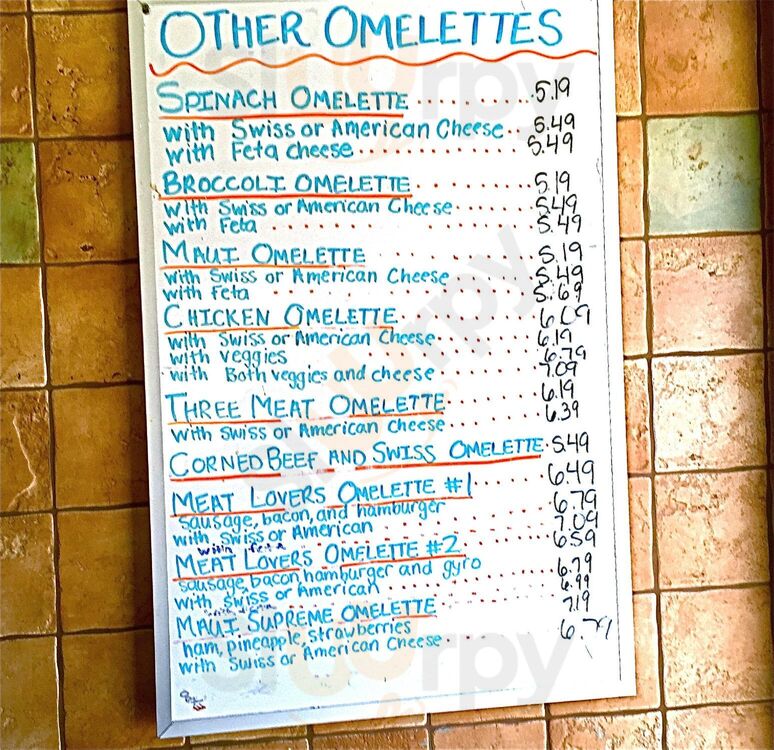 OTHER OMELETTES
SPINACH OMELETTE..........5.19
with Swiss or American Cheese..5.49
with Feta cheese............5.49
BROCCOLI OMELETTE..........5.19
with Swiss or American Cheese.......5.49
with Feta..............5.49
MAUI OMELETTE............5.19
with Swiss or American Cheese.......5.49
with Feta..............5.69
CHICKEN OMELETTE..........
with Swiss or American Cheese.......6.19
with veggies..............6.79
with Both veggies and cheese.......7.09
THREE MEAT OMELETTE.......6.19
with Swiss or American Cheese.......6.39
CORNED BEEF AND SWISS OMELETTE.5.49
MEAT LOVERS OMELETTE #1......6.49
sausage, bacon, and hamburger
with Swiss or American.......6.79
with feta.......7.09
MEAT LOVERS OMELETTE #2.......6.59
sausage, bacon, hamburger and gyro
with Swiss or American.......6.79
6.99
MAUI SUPREME OMELETTE.......7.19
ham, pineapple, strawberries
with Swiss or American Cheese.......6.79